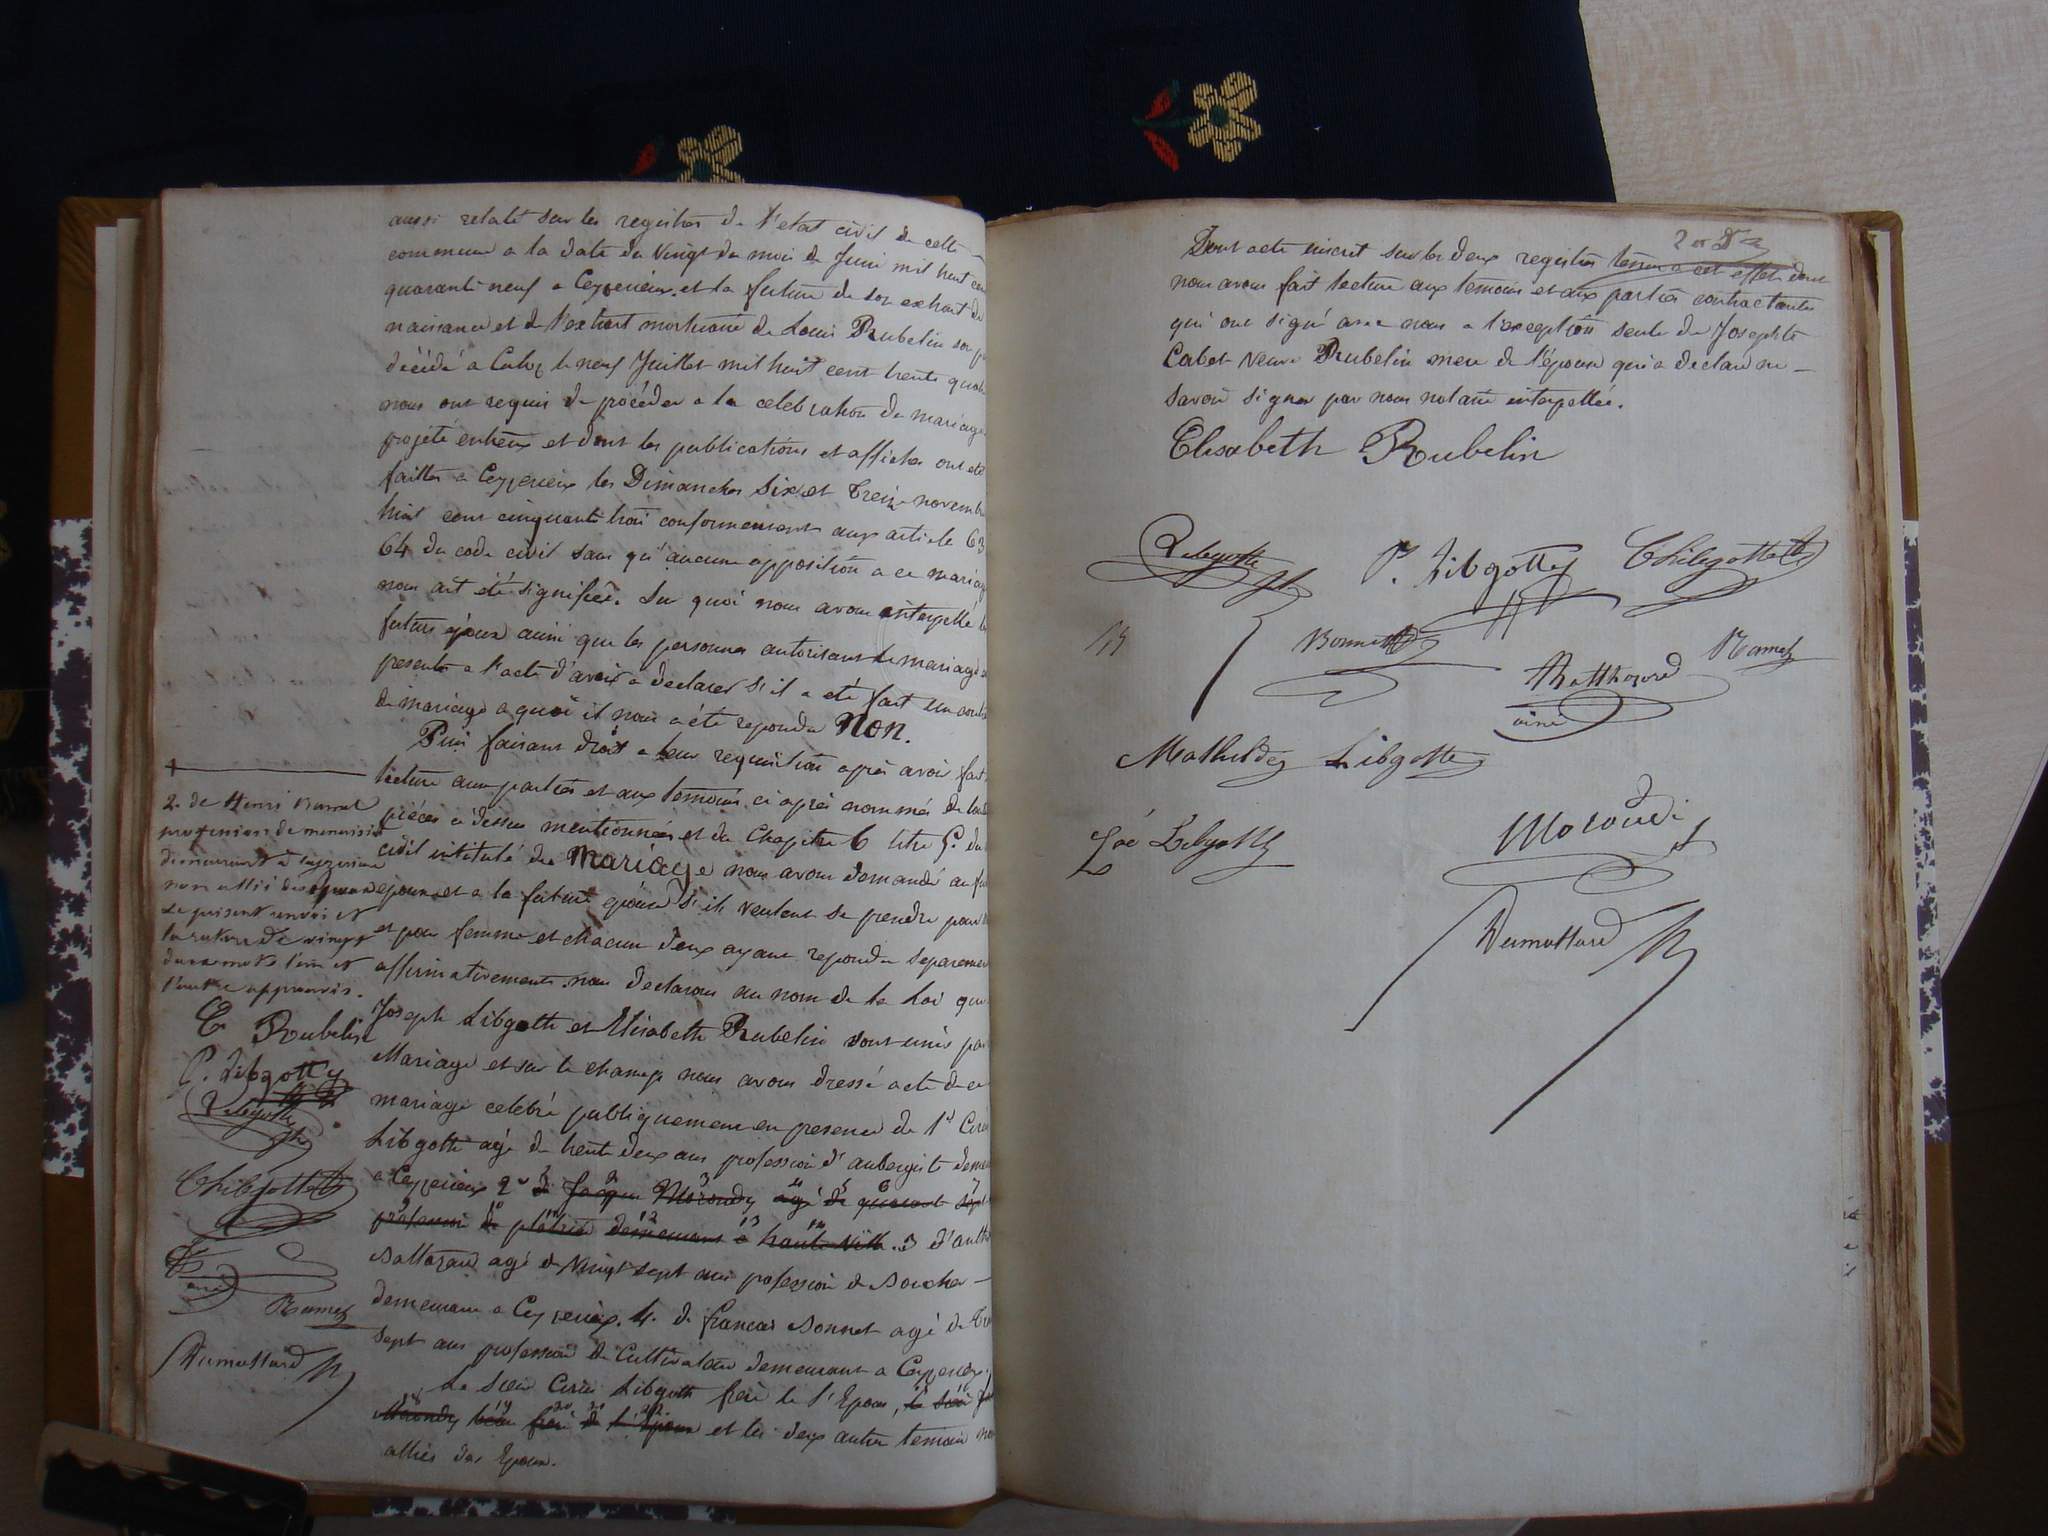 aussi relaté sur les registres de l'etat civil de cette
commune a la date du Vingt du mois de Juin mil huit cent
quarante neuf a Ceyzerieux. et la future de son extrait de
naissance et de l'extrait mortuaire de Louis Rubelin son
décédé a Culoz le neuf Juillet mil huit cent trente quatre
nous ont requis de procéder a la celebration du mariage
projété entreux et dont les publications et affiches ont été
faittes a Ceyzerieux les Dimanches Six et Treize novembre
huit cent cinquante trois conformement aux article 63
64 du code civil sans qu'aucune opposition a ce mariage
nous ait été signifiée. Sur quoi nous avons interpellé les
futurs époux ainsi que les personnes autorisant le mariage
presente a l'acte d'avoir a declarer S'il a été fait un contrat
de mariage a quoi il nous a été repondu Non.
Puis faisant droit a leur requisition après avoir fait
lecture aux parties et aux temoins ci après nommés de
pièces ci dessus mentionnées et du Chapitre 6 titre 5. du
civil intitulé du Mariage nous avons demandé au
époux et a la future épouse S'ils veulent se prendre pour
et pour femme et chacun d'eux ayant repondu separement
affirmativement nous declarons au nom de la Loi que
Joseph Libgotte et Elisabeth Rubelin sont unis par
Mariage et sur le champ nous avons dressé acte de ce
mariage celebré publiquement en presence de 1er Cirés
Libgotte agé de trente deux ans profession d'aubergiste
a Ceyzerieux 2e de Jacques Morondy agé de quarante sept
profession de platrier demeurant a haute ville. 3 d'anth
Baltazard agé de Vingt sept ans profession de Boucher
demeurant a Ceyzerieux. 4. de francois Bonnet agé de
Sept ans profession de Cultivateur demeurant a Ceyzerieux
Le Sieur Cirés Libgotte frere de l'Epoux, le Sieur
Morondy beau frere de l'Epoux et les deux autres temoins non
alliés des Epoux.
2. de Henri Ramel
profession de menuisier
demeurant à Ceyzerieux
non allié des époux
Le present renvoi et
la rature de vingt
deux mots l'un et
l'autre approuvés.
E Rubelin
P. Libgotte
Libgotte
Libgotte
ainé
Ramel
Dumollard
2 et D
Dont acte inscrit sur les deux registres tenus a cet effet dont
nous avons fait lecture aux temoins et aux parties contractantes
qui ont signé avec nous a l'exception seule de Josephte
Cabot Veuve Rubelin mere de l'épouse qui a declaré ne
savoir signer par nous notaire interpellée.
Elisabeth Rubelin
Libgotte
P. Libgotte
C Libgotte
Bonnet
Ramel
Balthazard
ainé
Mathilde Libgotte
Zoé Libgotte
Morondi
Dumollard